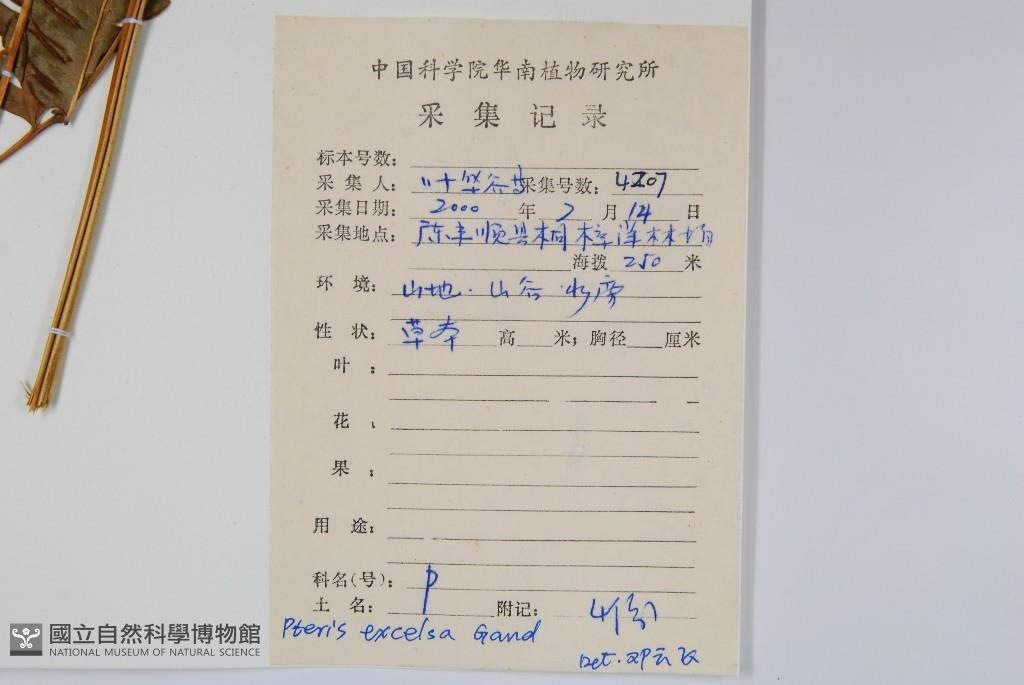 中国科学院华南植物研究所
采集记录
标本号数：
采集人：叶华谷 采集号数：4207
采集日期：2000年7月14日
采集地点：广东丰顺县桐梓洋林场
海拨250米
环境：山地．山谷．水旁
性状：草本 高 米；胸径 厘米
叶：
花：
果：
用途：
科名(号)：P
土名： 附记：4份
Pteris excelsa Gand
Det.
國立自然科學博物館
NATIONAL MUSEUM OF NATURAL SCIENCE